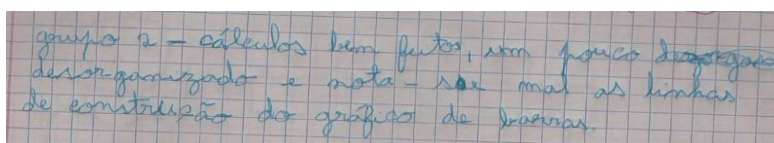 grupo 2 - cálculos bem feitos, um pouco
desorganizado e nota-se mal as linhas
de construção do gráfico de barras.